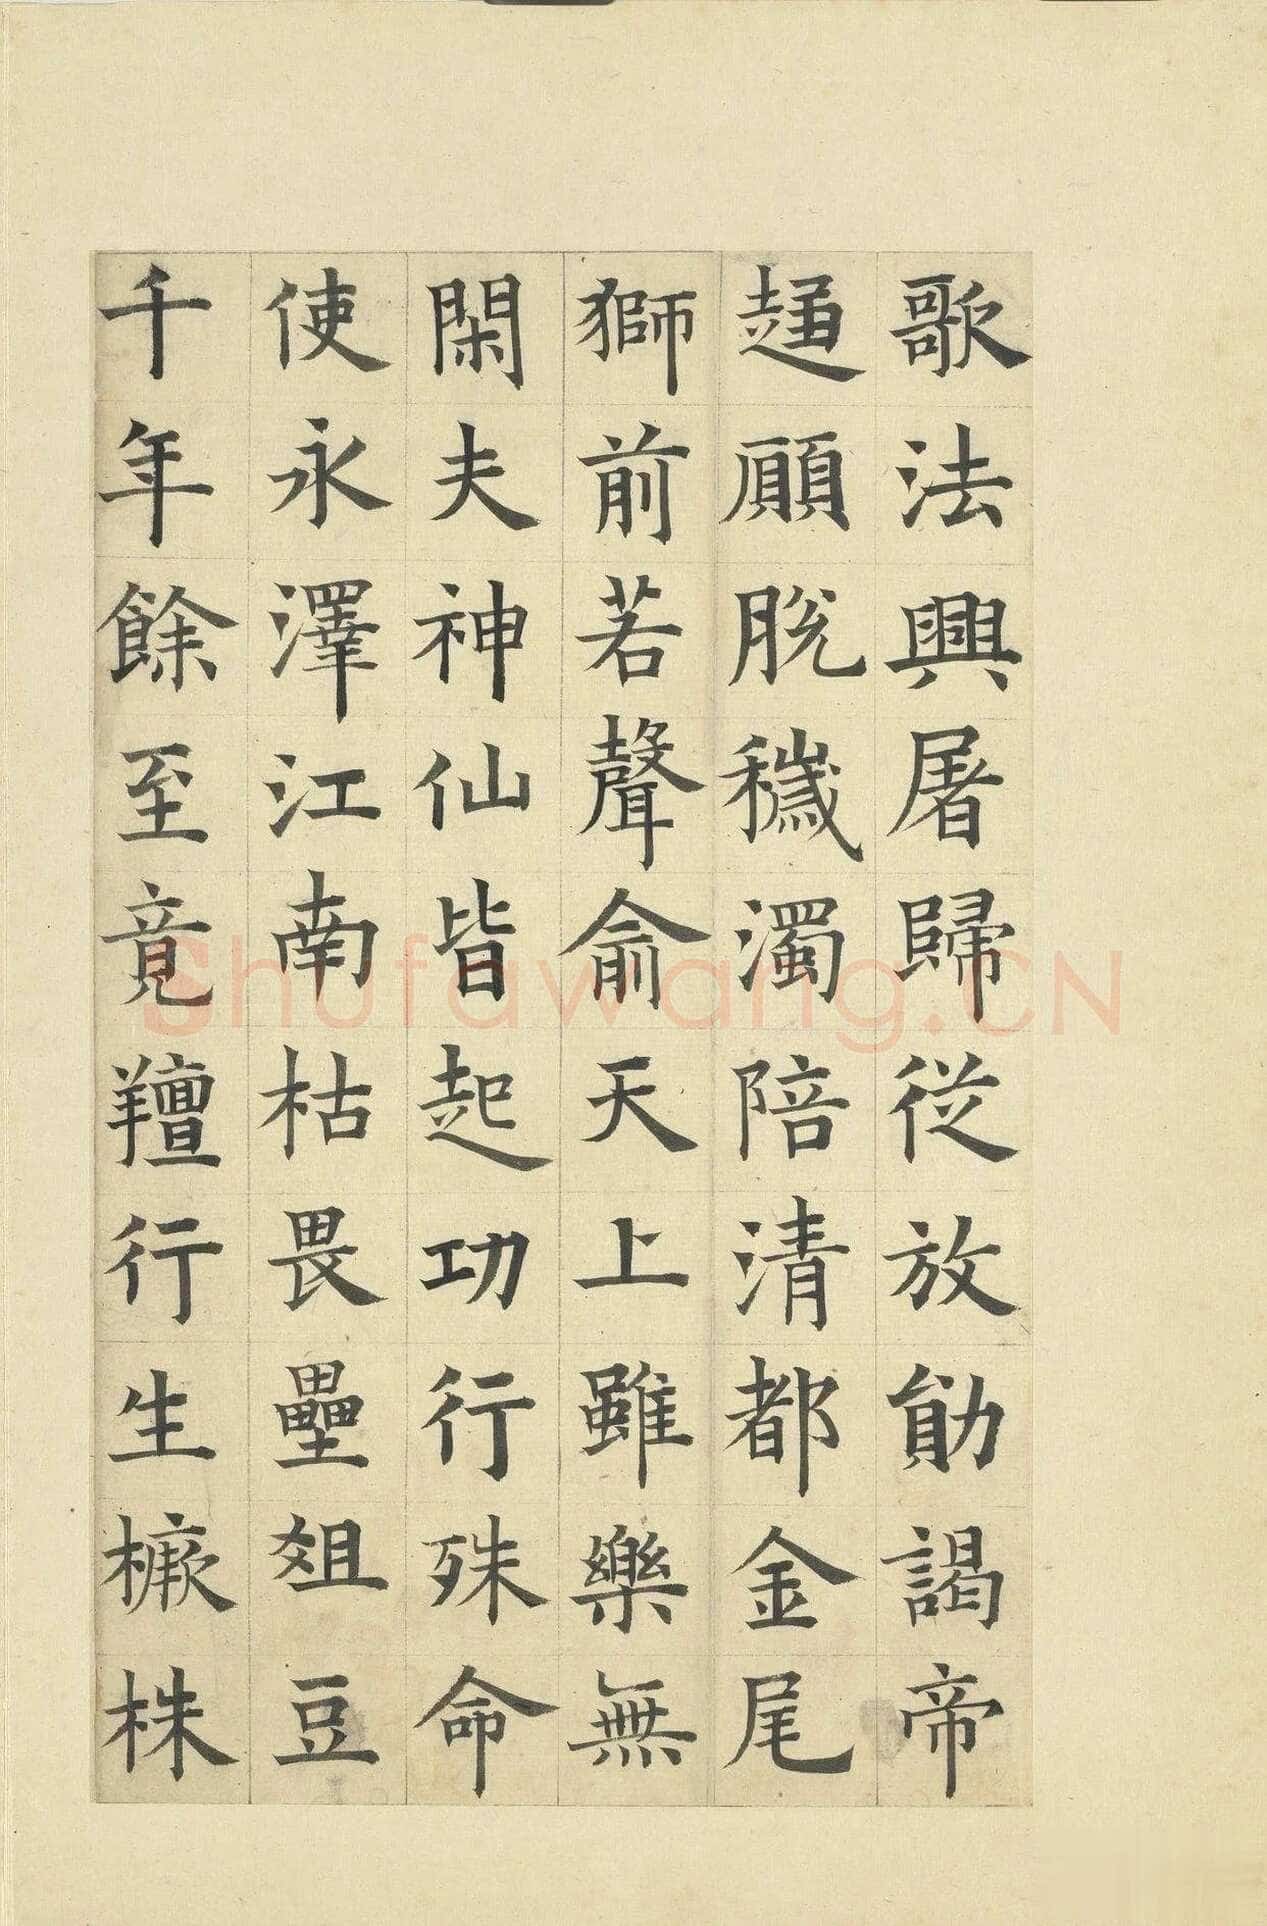 歌法興屠歸從放勛謁帝
願脫穢濁陪清都金尾
獅前若聲俞天上雖樂無
閑夫神仙皆起功行殊命
使永澤江南枯畏壘爼豆
千年餘至竟羶行生橛株
Shufawang.CN